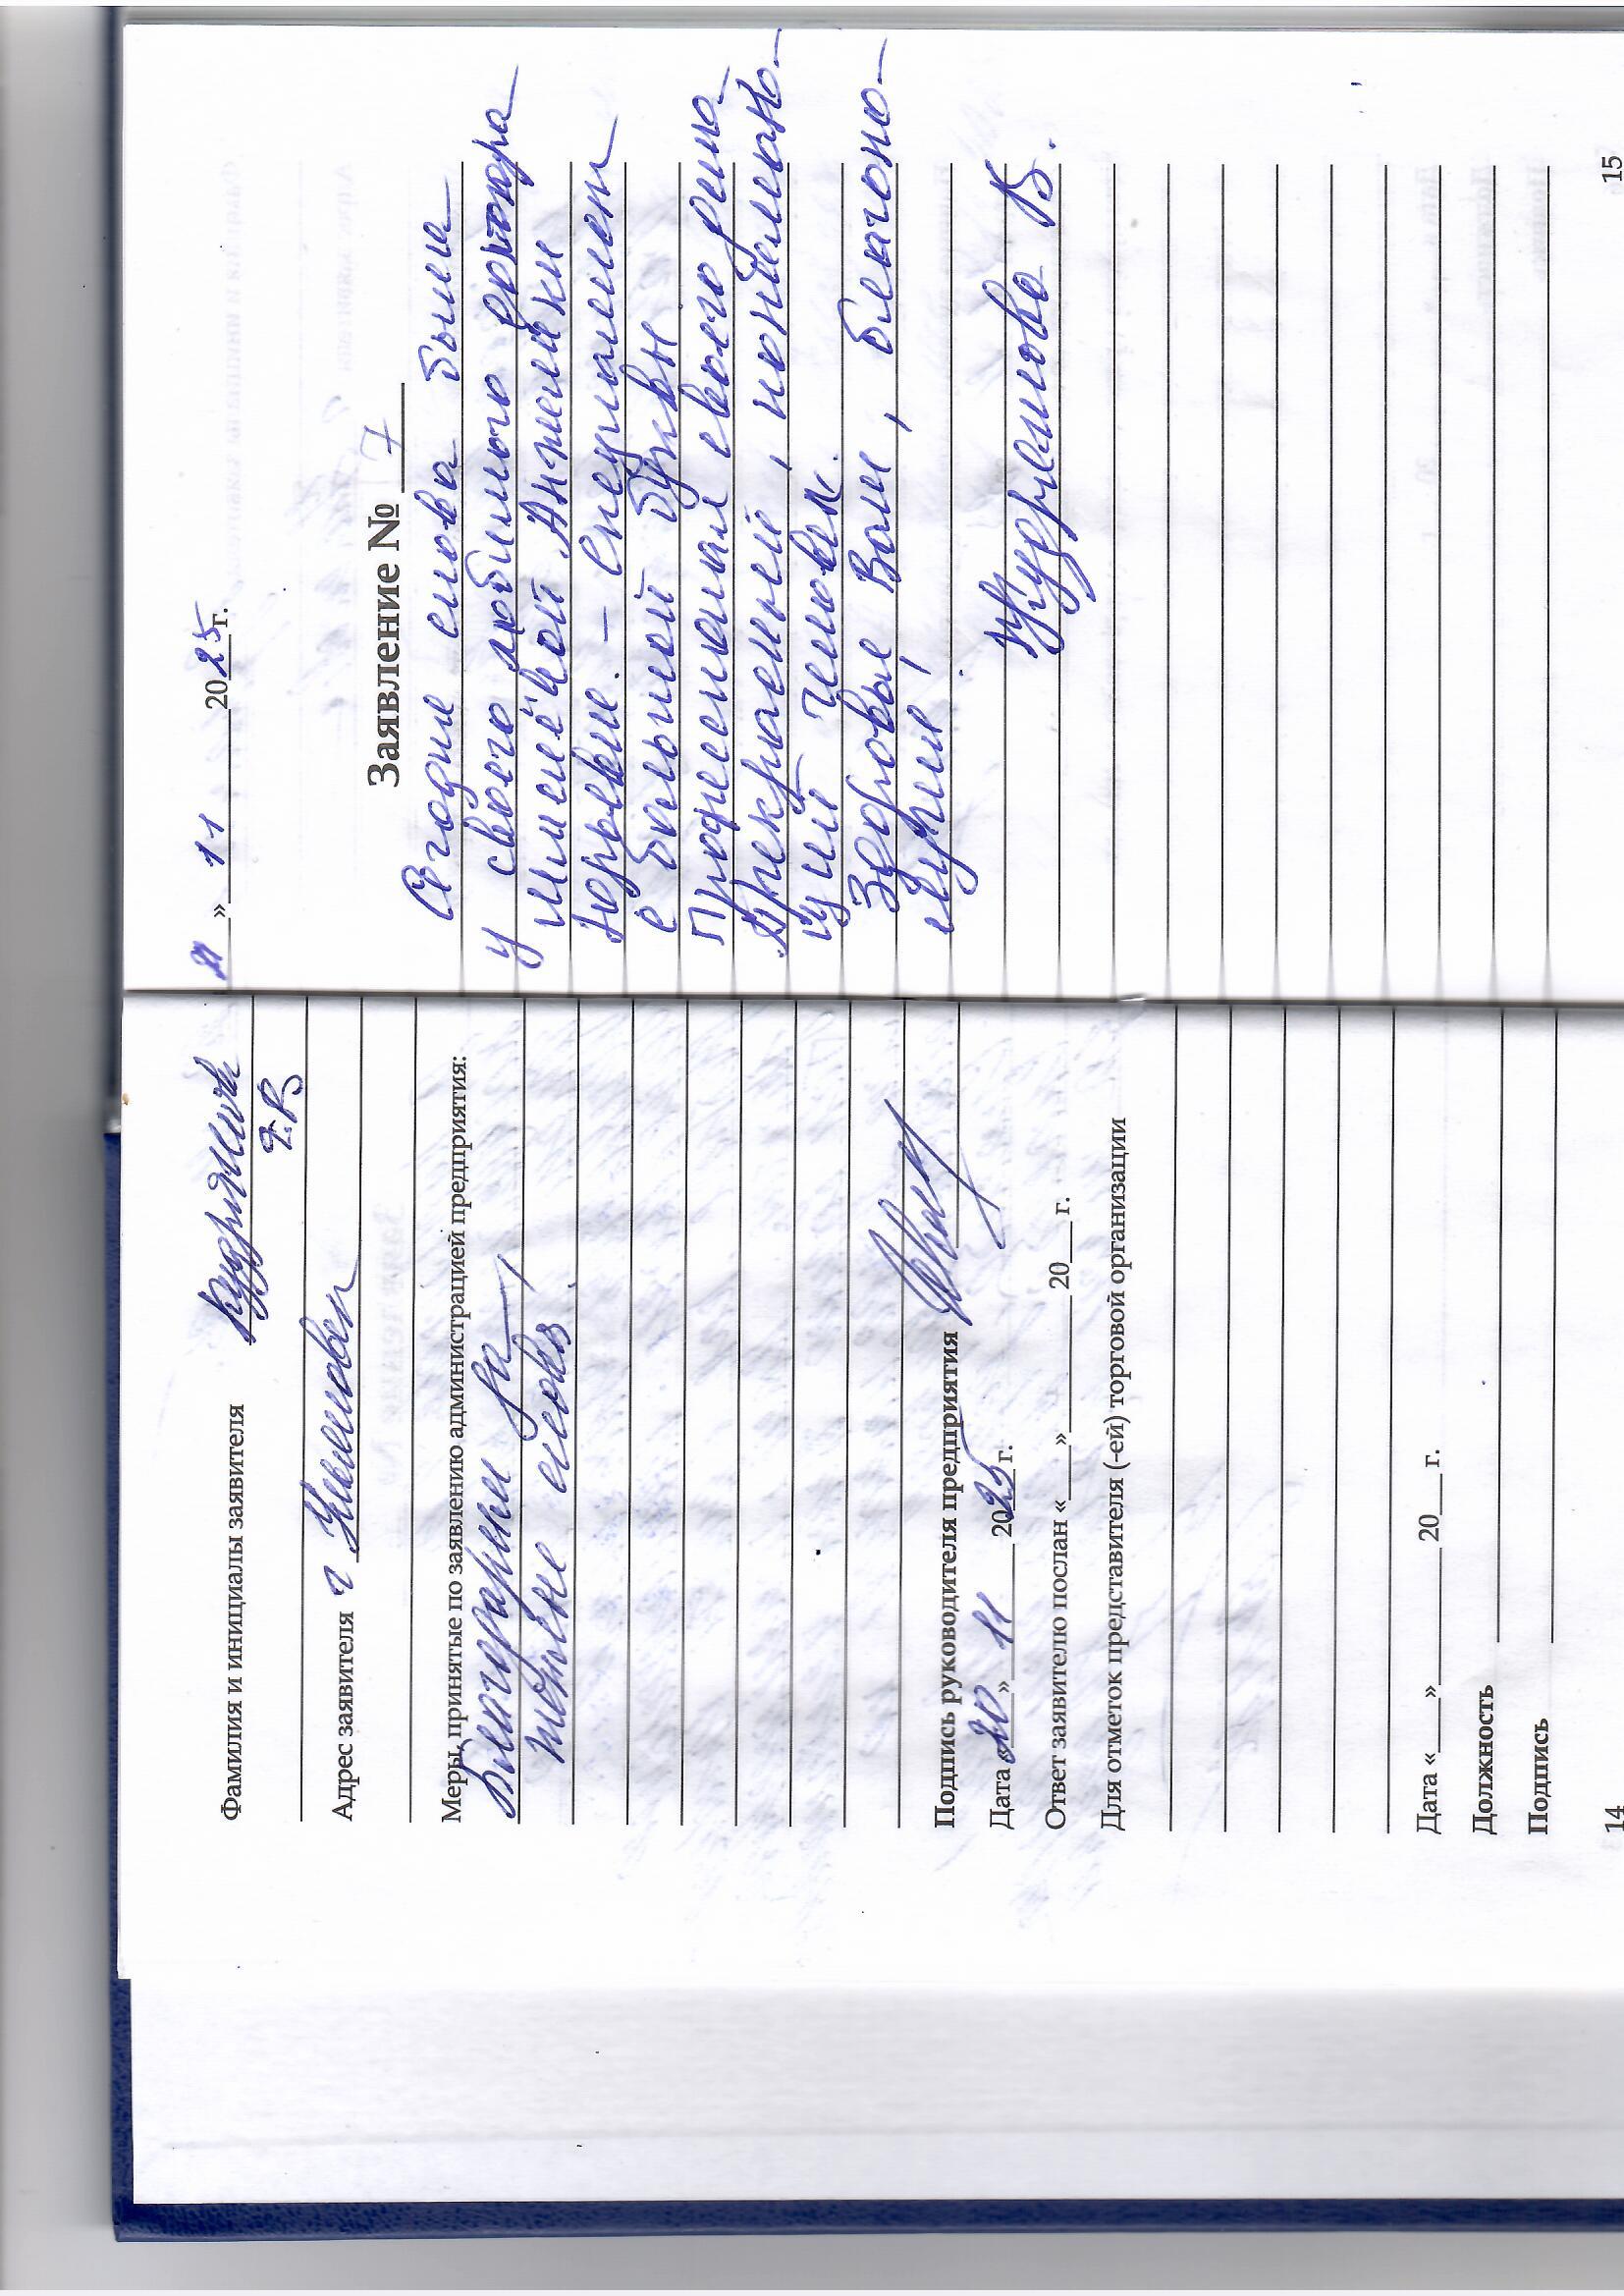 Фамилия и инициалы заявителя
Адрес заявителя г
Меры, принятые по заявлению администрацией предприятия:
Благодарим за
тёплые слова.
Подпись руководителя предприятия
Дата «20» 11 2025 г.
Ответ заявителю послан «___» ______ 20___г.
Для отметок представителя (-ей) торговой организации
Дата «___»______ 20___ г.
Должность
Подпись
14
» 11 2025 г.
Заявление № 7
Сегодня снова была
у своего любимого доктора
милейшей Анжелики
Юрьевне. – Специалист
с большой буквы
Профессионал своего дела
Прекрасный, понимаю-
щий человек.
Здоровья Вам, благопо-
лучия!
В.
15